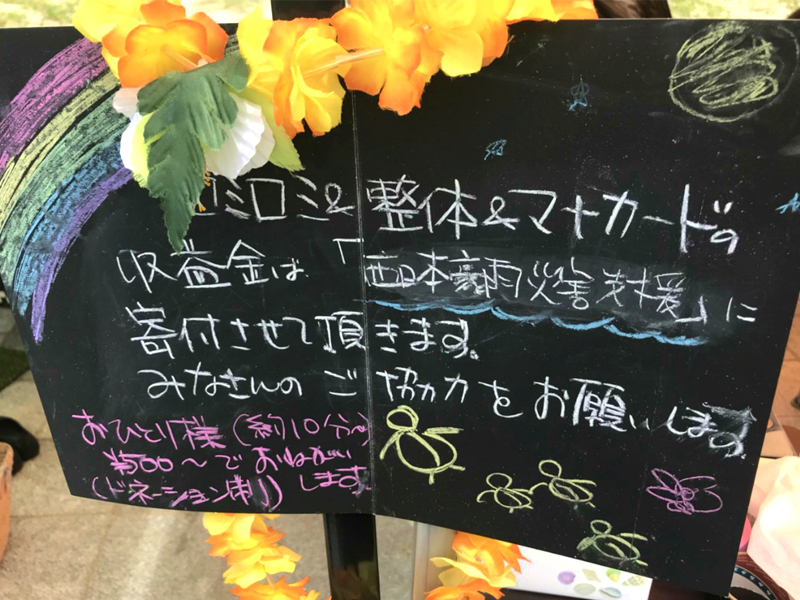 ロミロミ&整体&マナカードの
収益金は「西日本豪雨災害支援」に
寄付させて頂きます。
みなさんのご協力をお願いします。
おひとり様(約10分〜)
¥500〜でおねがい
(ドネーション制)します